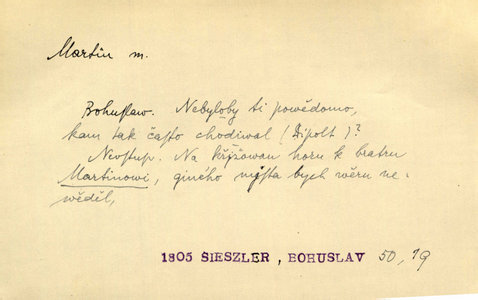 Martin m.
Bohuslaw. Nebyloby ti powědomo,
kam tak často chodíwal (Dipolt)?
Neostup. Na křižowau horu k bratru
Martinowi, giného mjsta bych wěru ne-
wěděl,
1805 SIESZLER, BOHUSLAV 50, 19